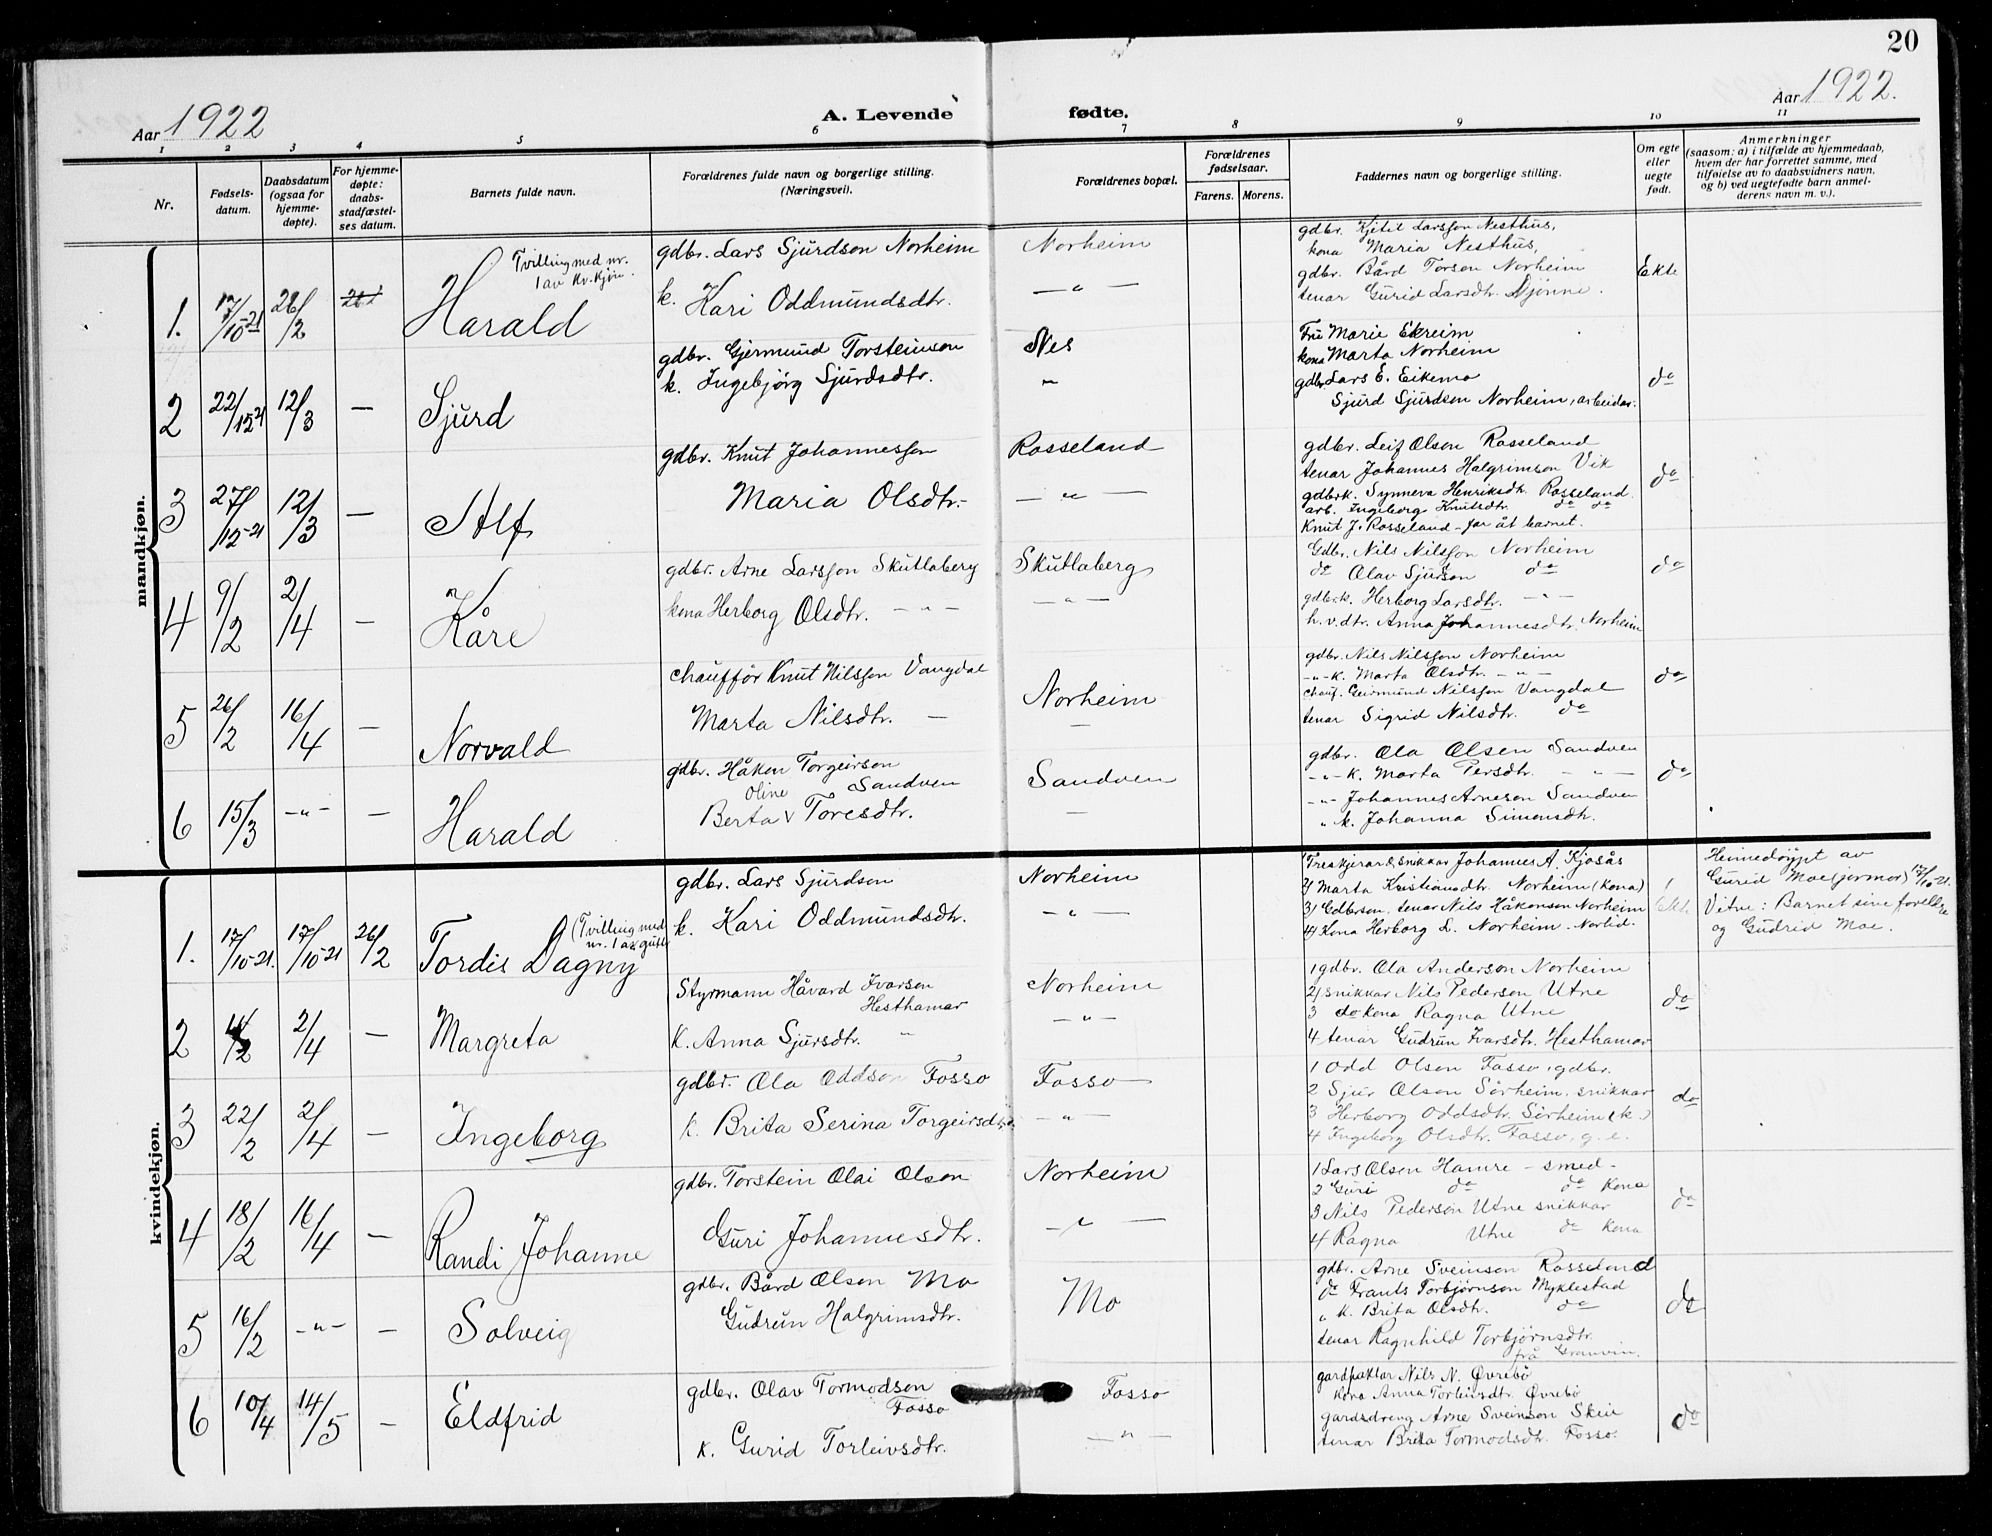 20
Aar 1922
A. Levende fødte.
Aar 1922.
1 2 3 4 5 6 7 8 9 10 11
Nr.
Fødsels-
datum.
Daabsdatum
(ogsaa for
hjemme-
døpte).
For hjemme-
døpte:
daabs-
stadfæstel-
ses datum.
Barnets fulde navn.
Forældrenes fulde navn og borgerlige stilling.
(Næringsvei).
Forældrenes bopæl.
Forældrenes
fødselsaar.
Farens. Morens.
Faddernes navn og borgerlige stilling.
Om egte
eller
uegte
født.
Anmerkninger
(saasom: a) i tilfælde av hjemmedaab,
hvem der har forrettet samme, med
tilføielse av to daabsvidners navn,
og b) ved uegtefødte barn anmel-
derens navn m. v.).
mandkjøn.
1. 17/10-21 26/2
Tvilling med nr.
1 av kv.kjøn.
Harald
gdbr. Lars Sjurdson Norheim
k. Kari Oddmundsdtr.
Norheim
— " —
gdbr. Kjetil Larsson Nesthus,
kona Maria Nesthus,
gdbr. Bård Torson Norheim
tenar Gurid Larsdtr. Djønne.
Ekte
2 22/12-21 12/3 —
Sjurd
gdbr. Gjermund Torsteinson
k. Ingebjørg Sjurdsdtr.
Nes
"
Fru Marie Ekreim
kona Marta Norheim
gdbr Lars E. Eikemo
Sjurd Sjurdson Norheim, arbeidar.
do
3 27/12-21 12/3 —
Alf
gdbr. Knut Johannesson
Maria Olsdtr.
Rosseland
— " —
gdbr. Leif Olson Rosseland
tenar Johannes Halgrimson Vik
gdbrk. Synneva Henriksdt. Rosseland
arb. Ingeborg Knutsdtr. do do
Knut J. Rosseland – far åt barnet.
do
4 9/2 2/4 —
Kåre
gdbr. Arne Larsson Skutlaberg
kona Herborg Olsdtr. — " —
Skutlaberg
— " —
Gdbr. Nils Nilsson Norheim
do Olav Sjurson do
gdbrk. Herborg Larsdtr. — " —
h.v.dtr. Anna Johannesdtr. Norheim
do
5 26/2 16/4 —
Norvald
chauffør Knut Nilsson Vangdal
Marta Nilsdtr. —
Norheim
—
gdbr. Nils Nilsson Norheim
— " — k. Marta Olsdtr. — " —
chauf. Guirmund Nilsson Vangdal
tenar Sigrid Nilsdtr. do
do
6 15/3 — " — —
Harald
gdbr. Håkon Torgeirson
Sandven
Oline
Berta v Toresdtr.
Sandven
—
gdbr. Ola Olsen Sandven
— " — k. Marta Persdtr. — " —
— " — Johannes Arneson Sandven
" k. Johanna Simonsdtr.
do
kvindekjøn.
1. 17/10-21. 17/10-21 26/2
(Tvilling med
nr. 1 av gutt
Tordis Dagny
gdbr. Lars Sjurdson
k. Kari Oddmundsdtr.
Norheim
— " —
2) Marta Kristiansdtr. Norheim (kona)
4) Kona Herborg L. Norheim.
Ekte
Heimedøypt av
Gurid Moe (jormor) 17/10-21.
Vitne: Barnet sine foreldre
og Gudrid Moe.
2 2/4 —
Margreta
Styrmann Håvard Ivarson
Hesthamar
k. Anna Sjursdtr. "
Norheim
— " —
1 gdbr. Ola Anderson Norheim
2) snikkar Nils Pederson Utne
3 do kona Ragna Utne
4 tenar Gudrun Ivarsdtr. Hesthamar
do
3 22/2 2/4 —
Ingeborg
gdbr. Ola Oddson Fosso
k. Brita Serina Torgeirsdtr.
Fosso
— " —
1 Odd Olson Fosso, gdbr.
2 Sjur Olson Sørheim, snikkar
3 Herborg Oddsdtr. Sørheim (k.)
4 Ingeborg Olsdtr. Fosso, g.e.
do
4 18/2 16/4 —
Randi Johanne
gdbr. Torstein Olai Olson
Guri Johannesdtr.
Norheim
— " —
1 Lars Olson Hamre – smed –
2 Guri do do kona
3 Nils Pederson Utne snikkar
4 Ragna Utne do kona
do
5 16/2 — " — —
Solveig
gdbr. Bård Olson Mo
Gudrun Halgrimsdtr.
Mo
gdbr. Arne Sveinson Rosseland
do Frants Torbjørnson Myklestad
" k. Brita Olsdtr. do
tenar Ragnhild Torbjørnsdtr.
frå Granvin.
do
6 10/4 14/5 —
Eldfrid
gdbr. Olav Tormodson
Fosso
k. Gurid Torleivsdtr.
Fosso
— " —
gardpaktar Nils N. Øvrebø
kona Anna Torleivsdtr. Øvrebø
gardsdreng Arne Sveinson Skeie
tenar Brita Tormodsdtr. Fosso.
do